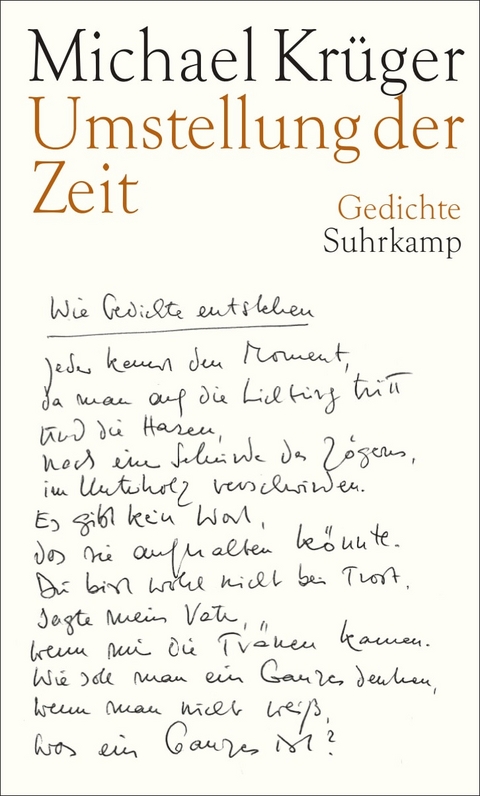 Michael Krüger
Umstellung der
Zeit
Gedichte
Suhrkamp
Wie Gedichte entstehen
Jeder kennt den Moment,
da man auf die Lichtung tritt
und die Hasen,
nach einer Sekunde des Zögerns,
im Unterholz verschwinden.
Es gibt kein Wort,
das sie aufhalten könnte.
Du bist wohl nicht bei Trost,
sagte mein Vater,
wenn mir die Tränen kamen.
Wie soll man ein Ganzes denken,
wenn man nicht weiß,
was ein Ganzes ist?